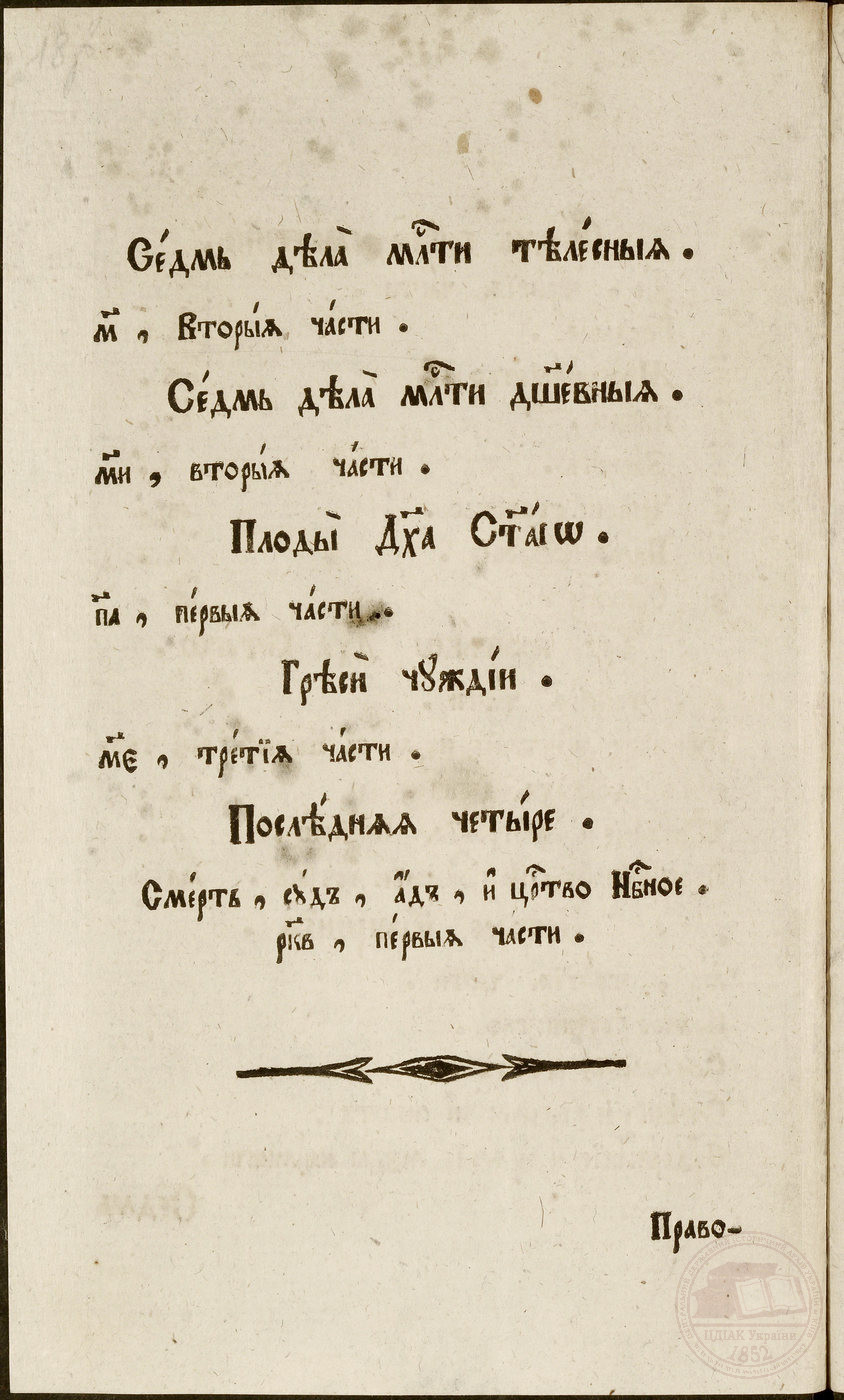 Се́дмь дѣла̀ мл҇ⷭ҇ти тѣле́сныѧ .
м҃ , Вторы́ѧ ча́сти .
Се́дмь дѣла̀ мл҇ⷭ҇ти дш҃е́вныѧ .
м҃и , вторы́ѧ ча́сти .
Плоды̀ Дх҃а Ст҃а́гѡ .
п҃а , пе́рвыѧ ча́сти .
Грѣсѝ чꙋжді́и .
м҃є , тре́тїѧ ча́сти .
Послѣ́днѧѧ четы́ре .
Сме́рть , сꙋ́дъ , а҆́дъ , и҆ црⷭ҇тво Нбⷭ҇ное .
рк҃в , пе́рвыѧ ча́сти .
Право-
ЦДІАК України
1852